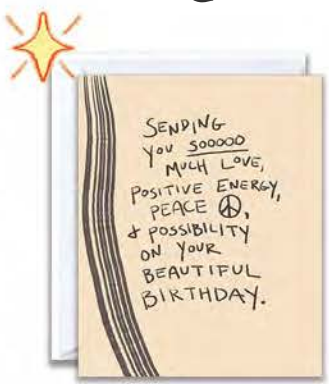 SENDING
YOU SOOOOO
MUCH LOVE,
POSITIVE ENERGY,
PEACE ☮,
& POSSIBILITY
ON YOUR
BEAUTIFUL
BIRTHDAY.